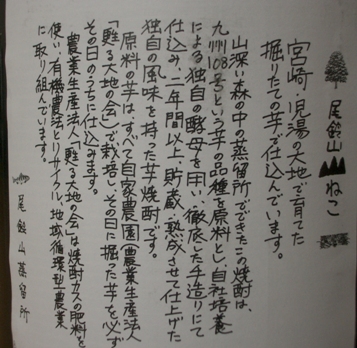 尾鈴山ねこ
宮崎・児湯の大地で育てた
掘りたての芋で仕込んでいます。
山深い森の中の蒸留所でできたこの焼酎は、
九州108号という芋の品種を原料とし、自社培養
による独自の酵母を用い、徹底した手造りにて
仕込み、二年間以上、貯蔵・熟成させて仕上げた
独自の風味を持った芋焼酎です。
原料の芋は、すべて自家農園(農業生産法人
「甦る大地の会」)で栽培し、その日に掘った芋を必ず
その日のうちに仕込みます。
農業生産法人「甦る大地の会」は焼酎カスの肥料を
使い、有機農法とリサイクル、地域循環型農業
に取り組んでいます。
尾鈴山蒸留所